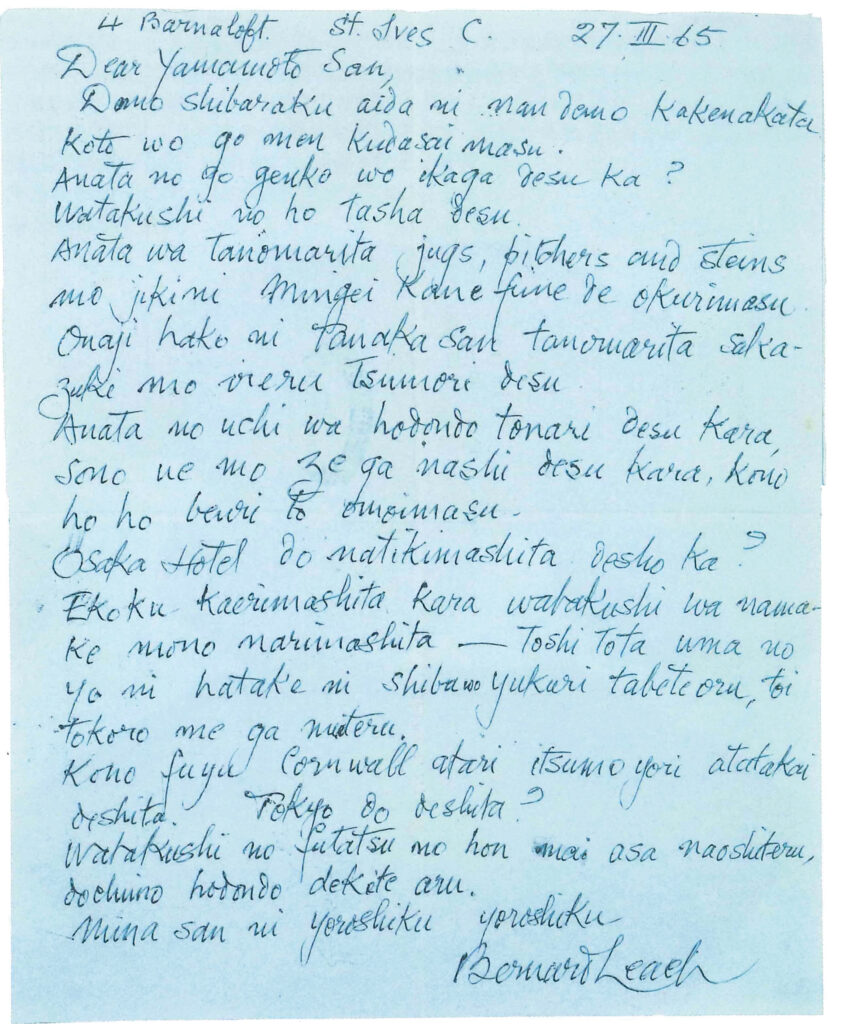 4 Barnaloft. St. Ives C. 27. III. 65
Dear Yamamoto San,
Domo shibaraku aida ni nan demo kakenakata
koto wo go men kudasai masu.
Anata no go genko wo ikaga desu ka ?
Watakushi no ho tasha desu.
Anata wa tanomarita jugs, pitchers and steins
mo jikini Mingei Kane fune de okurimasu.
Onaji hako ni Tanaka San tanomarita saka-
zuki mo ireru tsumori desu
Anata no uchi wa hodondo tonari desu kara,
sono ue mo ze ga nashi desu kara, kono
ho ho benri to omoimasu.
Osaka Hotel do natikimashita desho ka ?
Ekoku kaerimashita kara watakushi wa nama-
ke mono narimashita — Toshi Tota uma no
yo ni hatake ni shiba wo yukuri tabete oru, toi
tokoro me ga miteru.
Kono fuyu Cornwall atari itsumo yori atatakai
deshita. Tokyo do deshita ?
Watakushi no futatsu no hon mai asa naoshiteru,
dochimo hodondo dekite aru.
Mina san ni yoroshiku yoroshiku
Bernard Leach